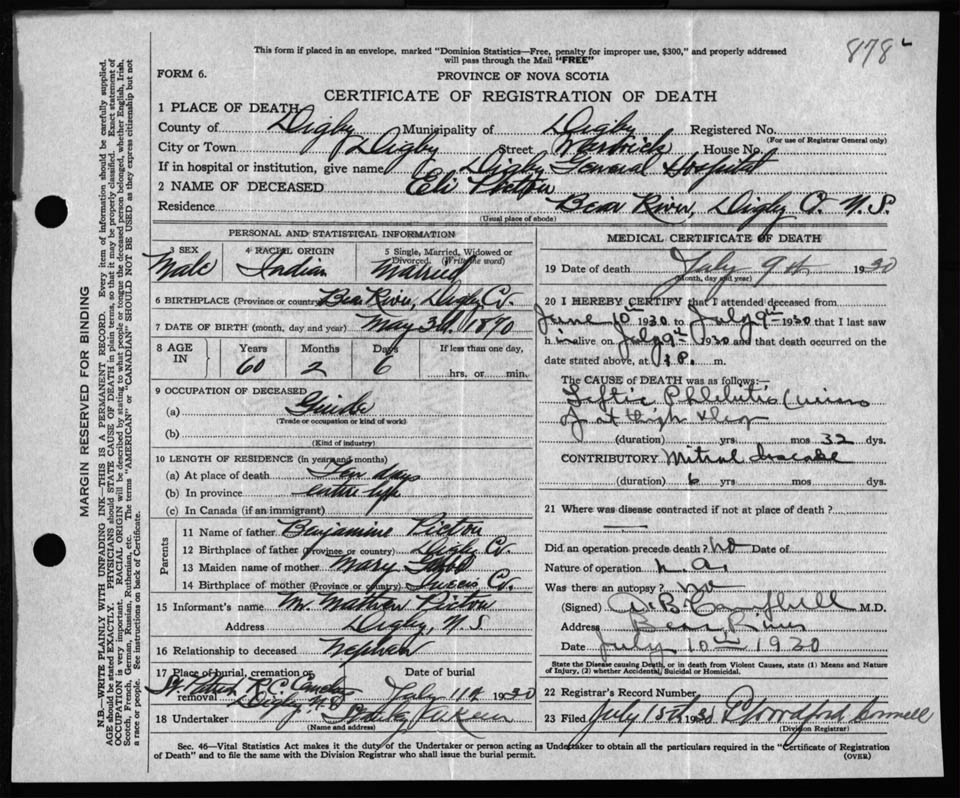 878
This form if placed in an envelope, marked "Dominion Statistics—Free, penalty for improper use, $300," and properly addressed
will pass through the Mail "FREE"
FORM 6.
PROVINCE OF NOVA SCOTIA
CERTIFICATE OF REGISTRATION OF DEATH
1 PLACE OF DEATH
County of Digby Municipality of Digby Registered No.
(For use of Registrar General only)
City or Town Digby Street Warwick House No.
If in hospital or institution, give name Digby General Hospital
2 NAME OF DECEASED Eli Pictou
Residence Bear River, Digby Co. N.S.
(Usual place of abode)
PERSONAL AND STATISTICAL INFORMATION
3 SEX Male
4 RACIAL ORIGIN Indian
5 Single, Married, Widowed or Divorced. (Write the word) Married
6 BIRTHPLACE (Province or country) Bear River, Digby Co.
7 DATE OF BIRTH (month, day and year) May 3rd. 1870
8 AGE IN Years 60 Months 2 Days 6 If less than one day, hrs. or min.
9 OCCUPATION OF DECEASED
(a) Guide
(Trade or occupation or kind of work)
(b)
(Kind of industry)
10 LENGTH OF RESIDENCE (in years and months)
(a) At place of death Ten days
(b) In province entire life
(c) In Canada (if an immigrant)
Parents
11 Name of father Benjamine Pictou
12 Birthplace of father (Province or country) Digby Co.
13 Maiden name of mother Mary
14 Birthplace of mother (Province or Country) Queens Co.
15 Informant's name Mr. Mathew Pictou
Address Digby, N.S
16 Relationship to deceased Nephew
17 Place of burial, cremation or removal R.C. Digby N.S Date of burial July 11th 1930
18 Undertaker
(Name and address)
MEDICAL CERTIFICATE OF DEATH
19 Date of death July 9th 1930
(Month, day and year)
20 I HEREBY CERTIFY that I attended deceased from
June 10th 1930 to July 9th 1930 that I last saw
h im alive on July 9th 1930 and that death occurred on the
date stated above, at P. m.
The CAUSE OF DEATH was as follows:—
Septic Phlebitis
of thigh & leg
(duration) yrs. mos 32 dys.
CONTRIBUTORY Mitral disease
(duration) 6 yrs mos dys.
21 Where was disease contracted if not at place of death?
Did an operation precede death? no Date of
Nature of operation n.a.
Was there an autopsy? no
(Signed) A.B. Campbell M.D.
Address Bear River
Date July 10th 1930
State the Disease causing Death, or in death from Violent Causes, state (1) Means and Nature
of Injury, (2) whether Accidental, Suicidal or Homicidal.
22 Registrar's Record Number
23 Filed July 15th 1930
(Division Registrar)
Sec. 46—Vital Statistics Act makes it the duty of the Undertaker or person acting as Undertaker to obtain all the particulars required in the "Certificate of Registration
of Death" and to file the same with the Division Registrar who shall issue the burial permit.
(OVER)
MARGIN RESERVED FOR BINDING
N.B.—WRITE PLAINLY WITH UNFADING INK—THIS IS A PERMANENT RECORD. Every item of information should be carefully supplied.
AGE should be stated EXACTLY. PHYSICIANS should STATE CAUSE OF DEATH in plain terms, so that it may be properly classified. Exact statement of
OCCUPATION is very important. RACIAL ORIGIN will be described by stating to what people or tongue the deceased person belonged, whether English, Irish,
Scotch, French, German, Russian, Ruthenian, etc. The terms "AMERICAN" or "CANADIAN" SHOULD NOT BE USED as they express citizenship but not
a race or people. See instructions on back of Certificate.